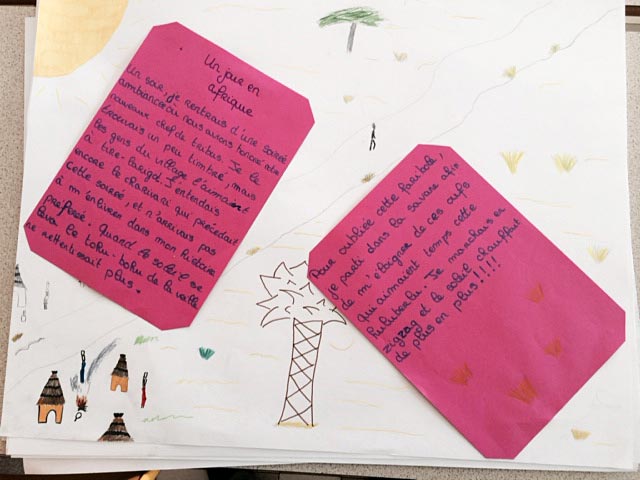 Un jour en
afrique
Un soir, je rentrais d'une soirée
ambiancée où nous avions honoré notre
nouveaux chef de tribus. Je le
trouvais un peu timbré, mais
les gens du village l'aimaient
à tire-larigot. J'entendais
encore le charivari qui précédait
cette soirée, et n'arrivais pas
à m'enlivrer dans mon histoire
préféré. Quand le soleil se
leva le tohu-bohu de la veille
ne rettentissait plus.
Pour oubliée cette faribole,
je parti dans la savane afin
de m'éloigner de ces
qui aimaient temps cette
huluberlu. Je marchais en
zigzag et le soleil chauffait
de plus en plus!!!!